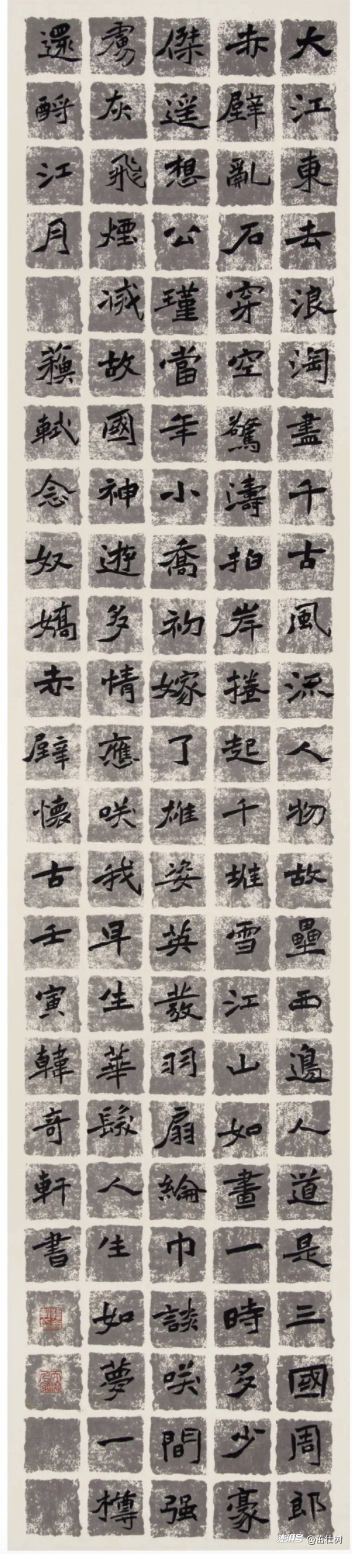 大江東去浪淘盡千古風流人物故壘西邊人道是三國周郎
赤壁亂石穿空驚濤拍岸捲起千堆雪江山如畫一時多少豪
傑遥想公瑾當年小喬初嫁了雄姿英發羽扇綸巾談咲間强
虜灰飛煙滅故國神遊多情應咲我早生華髮人生如夢一樽
還酹江月 蘓軾念奴嬌赤壁懷古壬寅韓奇軒書